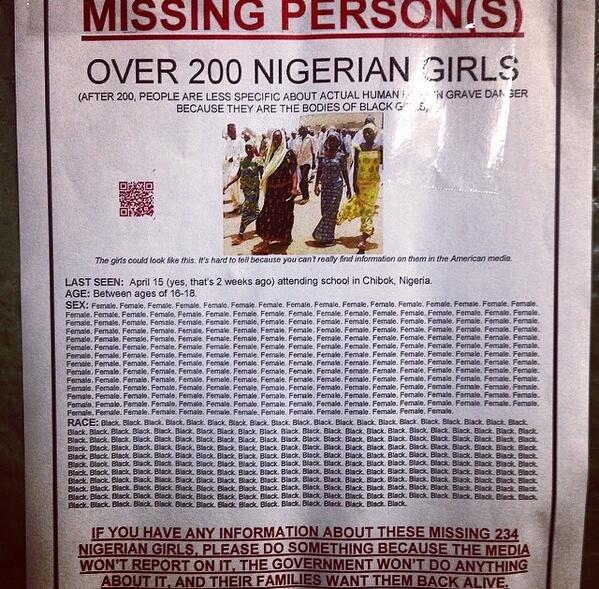 MISSING PERSON(S)
OVER 200 NIGERIAN GIRLS
(AFTER 200, PEOPLE ARE LESS SPECIFIC ABOUT ACTUAL HUMAN IN GRAVE DANGER
BECAUSE THEY ARE THE BODIES OF BLACK GIRLS)
The girls could look like this. It's hard to tell because you can't really find information on them in the American media.
LAST SEEN: April 15 (yes, that's 2 weeks ago) attending school in Chibok, Nigeria.
AGE: Between ages of 16-18.
SEX: Female. Female. Female. Female. Female. Female. Female. Female. Female. Female. Female. Female. Female. Female. Female. Female.
Female. Female. Female. Female. Female. Female. Female. Female. Female. Female. Female. Female. Female. Female. Female. Female. Female.
Female. Female. Female. Female. Female. Female. Female. Female. Female. Female. Female. Female. Female. Female. Female. Female. Female.
Female. Female. Female. Female. Female. Female. Female. Female. Female. Female. Female. Female. Female. Female. Female. Female. Female.
Female. Female. Female. Female. Female. Female. Female. Female. Female. Female. Female. Female. Female. Female. Female. Female. Female.
Female. Female. Female. Female. Female. Female. Female. Female. Female. Female. Female. Female. Female. Female. Female. Female. Female.
Female. Female. Female. Female. Female. Female. Female. Female. Female. Female. Female. Female. Female. Female. Female. Female. Female.
Female. Female. Female. Female. Female. Female. Female. Female. Female. Female. Female. Female. Female. Female. Female. Female. Female.
Female. Female. Female. Female. Female. Female. Female. Female. Female. Female. Female. Female. Female. Female. Female. Female. Female.
Female. Female. Female. Female. Female. Female. Female. Female. Female. Female. Female. Female. Female. Female. Female. Female. Female.
Female. Female. Female. Female. Female. Female. Female. Female. Female. Female. Female. Female. Female. Female. Female. Female. Female.
Female. Female. Female. Female. Female. Female. Female. Female. Female. Female. Female. Female. Female. Female. Female. Female. Female.
Female. Female. Female. Female. Female. Female. Female. Female. Female. Female. Female. Female. Female. Female.
RACE: Black. Black. Black. Black. Black. Black. Black. Black. Black. Black. Black. Black. Black. Black. Black. Black. Black. Black.
Black. Black. Black. Black. Black. Black. Black. Black. Black. Black. Black. Black. Black. Black. Black. Black. Black. Black. Black. Black.
Black. Black. Black. Black. Black. Black. Black. Black. Black. Black. Black. Black. Black. Black. Black. Black. Black. Black. Black. Black.
Black. Black. Black. Black. Black. Black. Black. Black. Black. Black. Black. Black. Black. Black. Black. Black. Black. Black. Black. Black.
Black. Black. Black. Black. Black. Black. Black. Black. Black. Black. Black. Black. Black. Black. Black. Black. Black. Black. Black. Black.
Black. Black. Black. Black. Black. Black. Black. Black. Black. Black. Black. Black. Black. Black. Black. Black. Black. Black. Black. Black.
Black. Black. Black. Black. Black. Black. Black. Black. Black. Black. Black. Black. Black. Black. Black. Black. Black. Black. Black. Black.
Black. Black. Black. Black. Black. Black. Black. Black. Black. Black. Black. Black. Black. Black. Black. Black. Black. Black. Black. Black.
Black. Black. Black. Black. Black. Black. Black. Black. Black. Black. Black. Black. Black. Black. Black. Black. Black. Black. Black. Black.
Black. Black. Black. Black. Black. Black. Black. Black. Black. Black. Black. Black. Black. Black.
IF YOU HAVE ANY INFORMATION ABOUT THESE MISSING 234
NIGERIAN GIRLS, PLEASE DO SOMETHING BECAUSE THE MEDIA
WON'T REPORT ON IT, THE GOVERNMENT WON'T DO ANYTHING
ABOUT IT, AND THEIR FAMILIES WANT THEM BACK ALIVE.